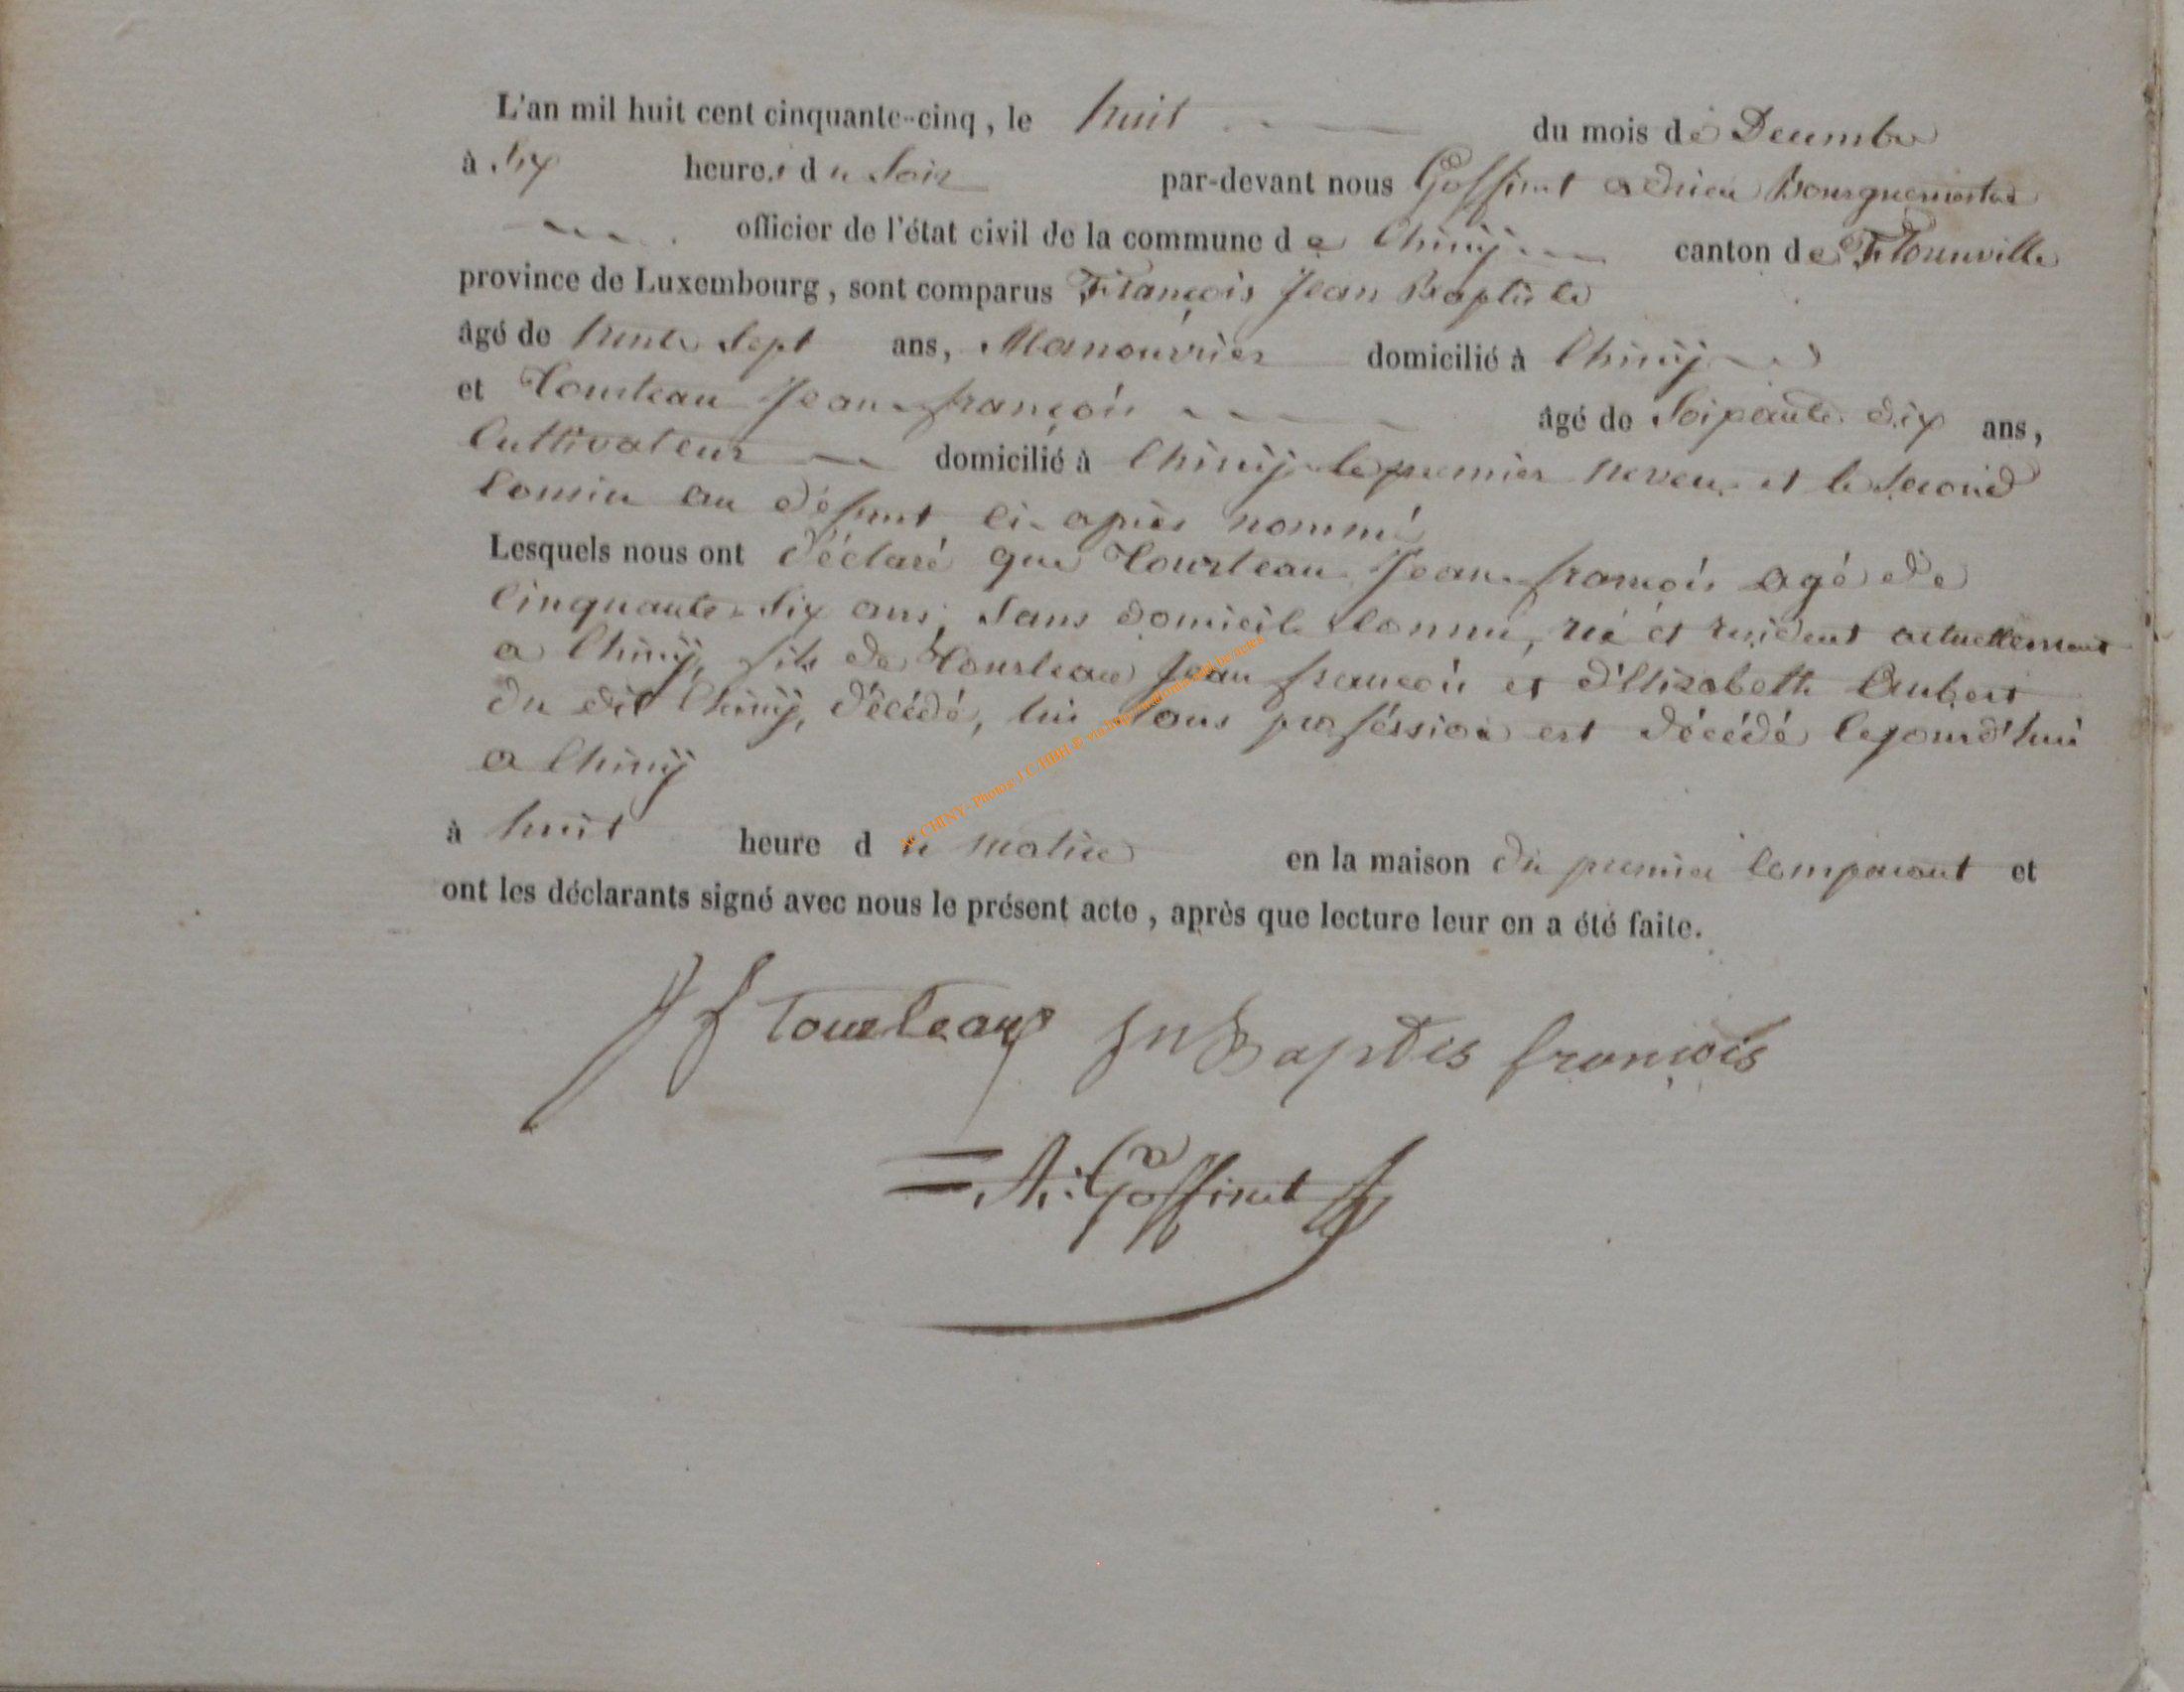 L'an mil huit cent cinquante-cinq, le huit du mois de Decembre
à six heures du Soir par-devant nous Goffinet adrien Bourguemestre
officier de l'état civil de la commune de Chinÿ canton de Florenville
province de Luxembourg, sont comparus François Jean Baptiste
âgé de trente Sept ans, Manouvrier domicilié à Chinÿ
et Tourteau Jean françois âgé de Soixante dix ans,
Cultivateur domicilié à Chinÿ le premier neveu et le second
Cousin au défunt ci-après nommé
Lesquels nous ont déclaré que Tourteau Jean françois agé de
Cinquante-six ans, Sans domicile connu, né et résident actuellement
a Chinÿ, fils de Tourteau Jean françois et d'Elizabeth Aubert
du dit Chinÿ, décédé, lui sans proféssion est décédé cejourd'hui
a Chinÿ
à huit heure du matin en la maison du premier comparant et
ont les déclarants signé avec nous le présent acte, après que lecture leur en a été faite.
J f Tourteaux Jn Baptis francois
A. Goffinet